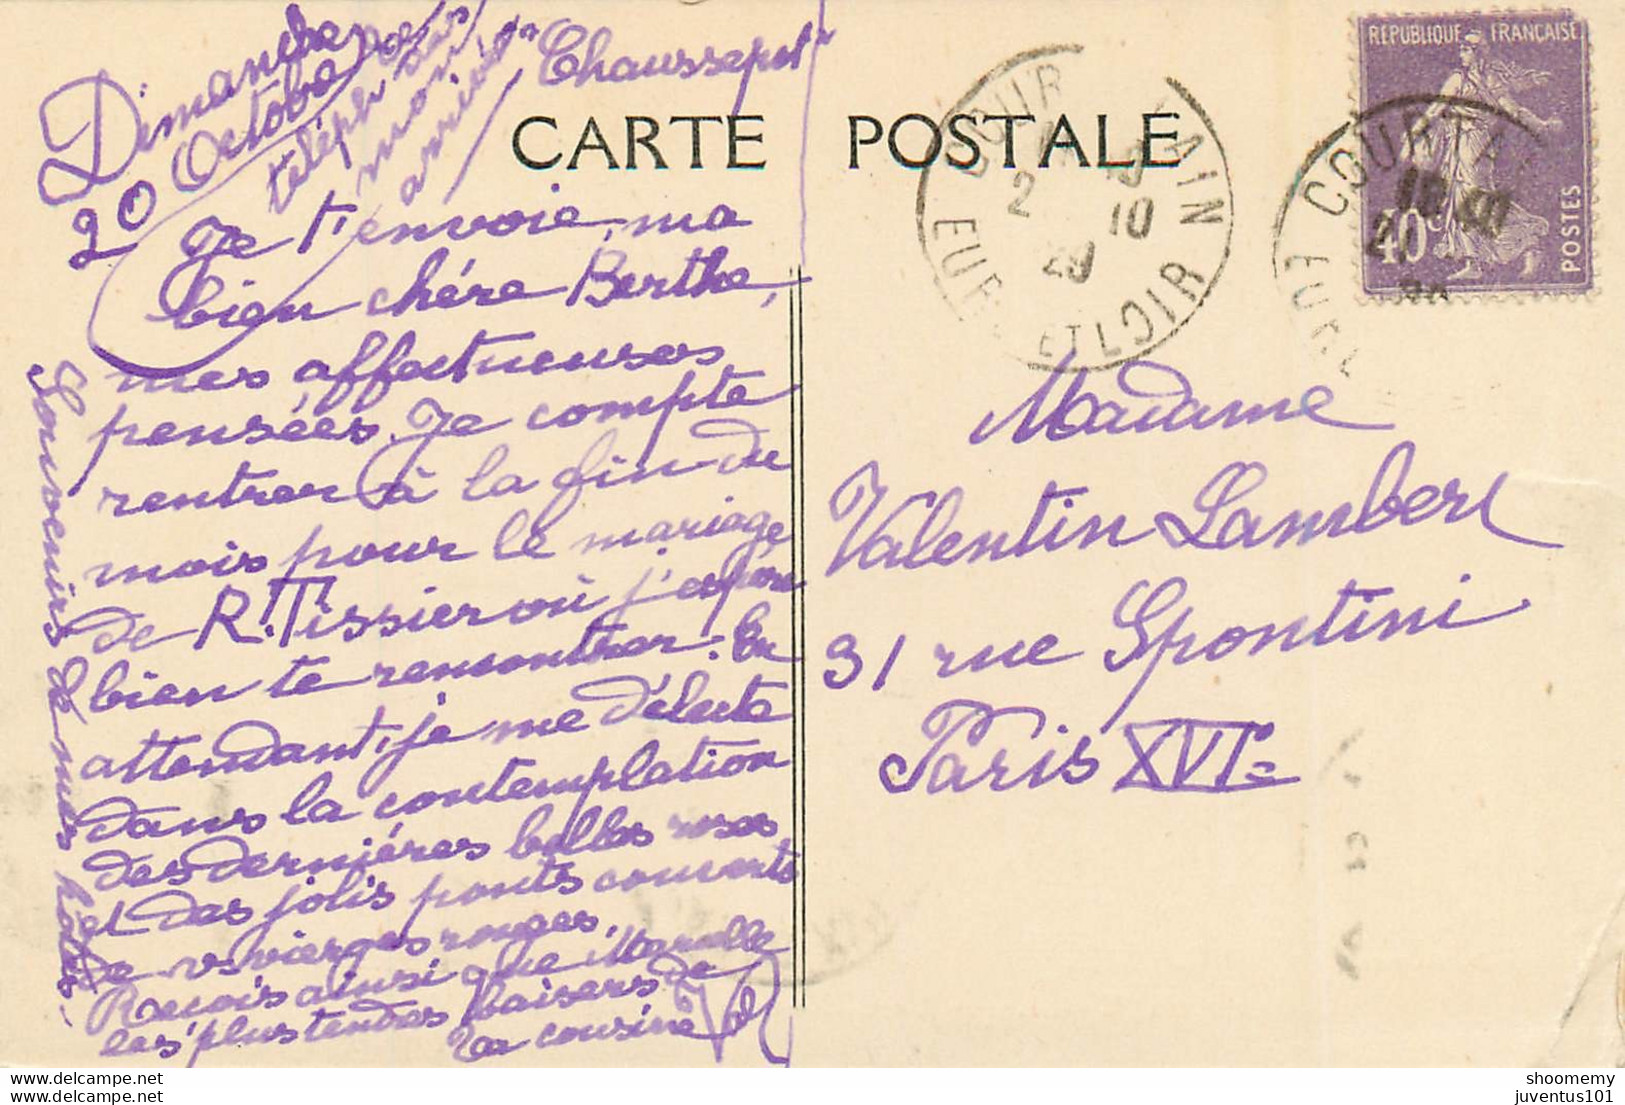 Dimanche
20 Octobre
téléph
mon
arrivée
Chaussepot
CARTE POSTALE
RÉPUBLIQUE FRANÇAISE
40c
POSTES
COUR TAIN
2 10
29
EURE ET LOIR
COURTA
EURE
Je t'envoie, ma
bien chére Berthe,
mes affectueuses
pensées. Je compte
rentrer à la fin du
mois pour le mariage
de R. Tissier où j'espère
bien te rencontrer. En
attendant, je me délecte
dans la contemplation
des derniéres belles roses
et des jolis ponts couverts
de vierges rouges.
Reçois ainsi que Marcelle
les plus tendres baisers de
ta cousine
Souvenirs de mes hôtes.
Madame
Valentin Lambert
31 rue Spontini
Paris XVIe
shoomemy
juventus101